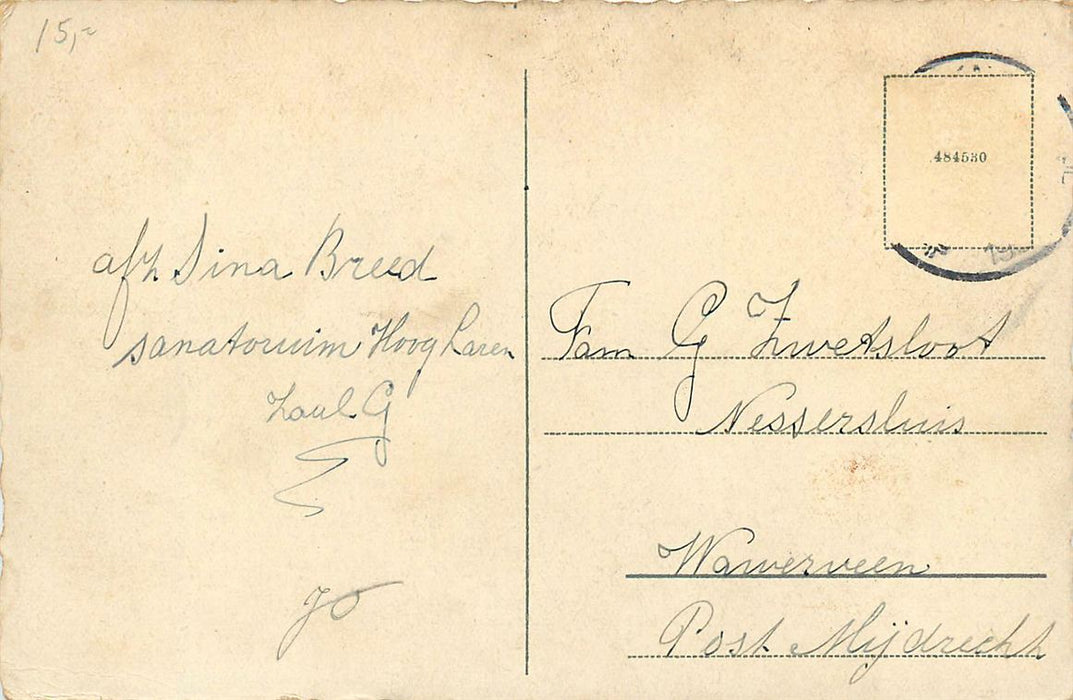 15,-
afz Sina Breed
sanatorium Hoog Laren
Zaal G
go
484530
Fam G Zwetsloot
Nessersluis
Waverveen
Post Mijdrecht